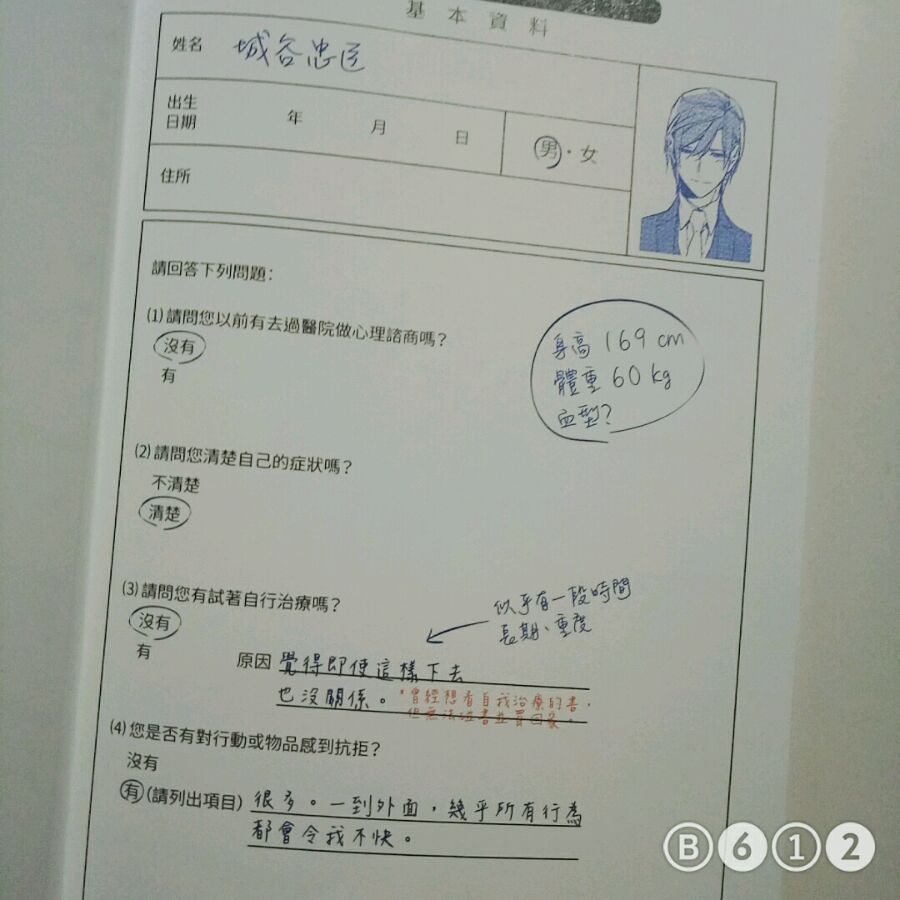 基本資料
姓名 城谷忠臣
出生
日期 年 月 日 男・女
住所
請回答下列問題：
(1) 請問您以前有去過醫院做心理諮商嗎？
沒有
有
身高 169 cm
體重 60 kg
血型?
(2) 請問您清楚自己的症狀嗎？
不清楚
清楚
(3) 請問您有試著自行治療嗎？
沒有
有
似乎有一段時間
長期、重度
原因 覺得即使這樣下去
也沒關係。*曾經想看自我治療的書，
但無法從書並買回家。
(4) 您是否有對行動或物品感到抗拒？
沒有
有 (請列出項目) 很多。一到外面，幾乎所有行為
都會令我不快。
B612